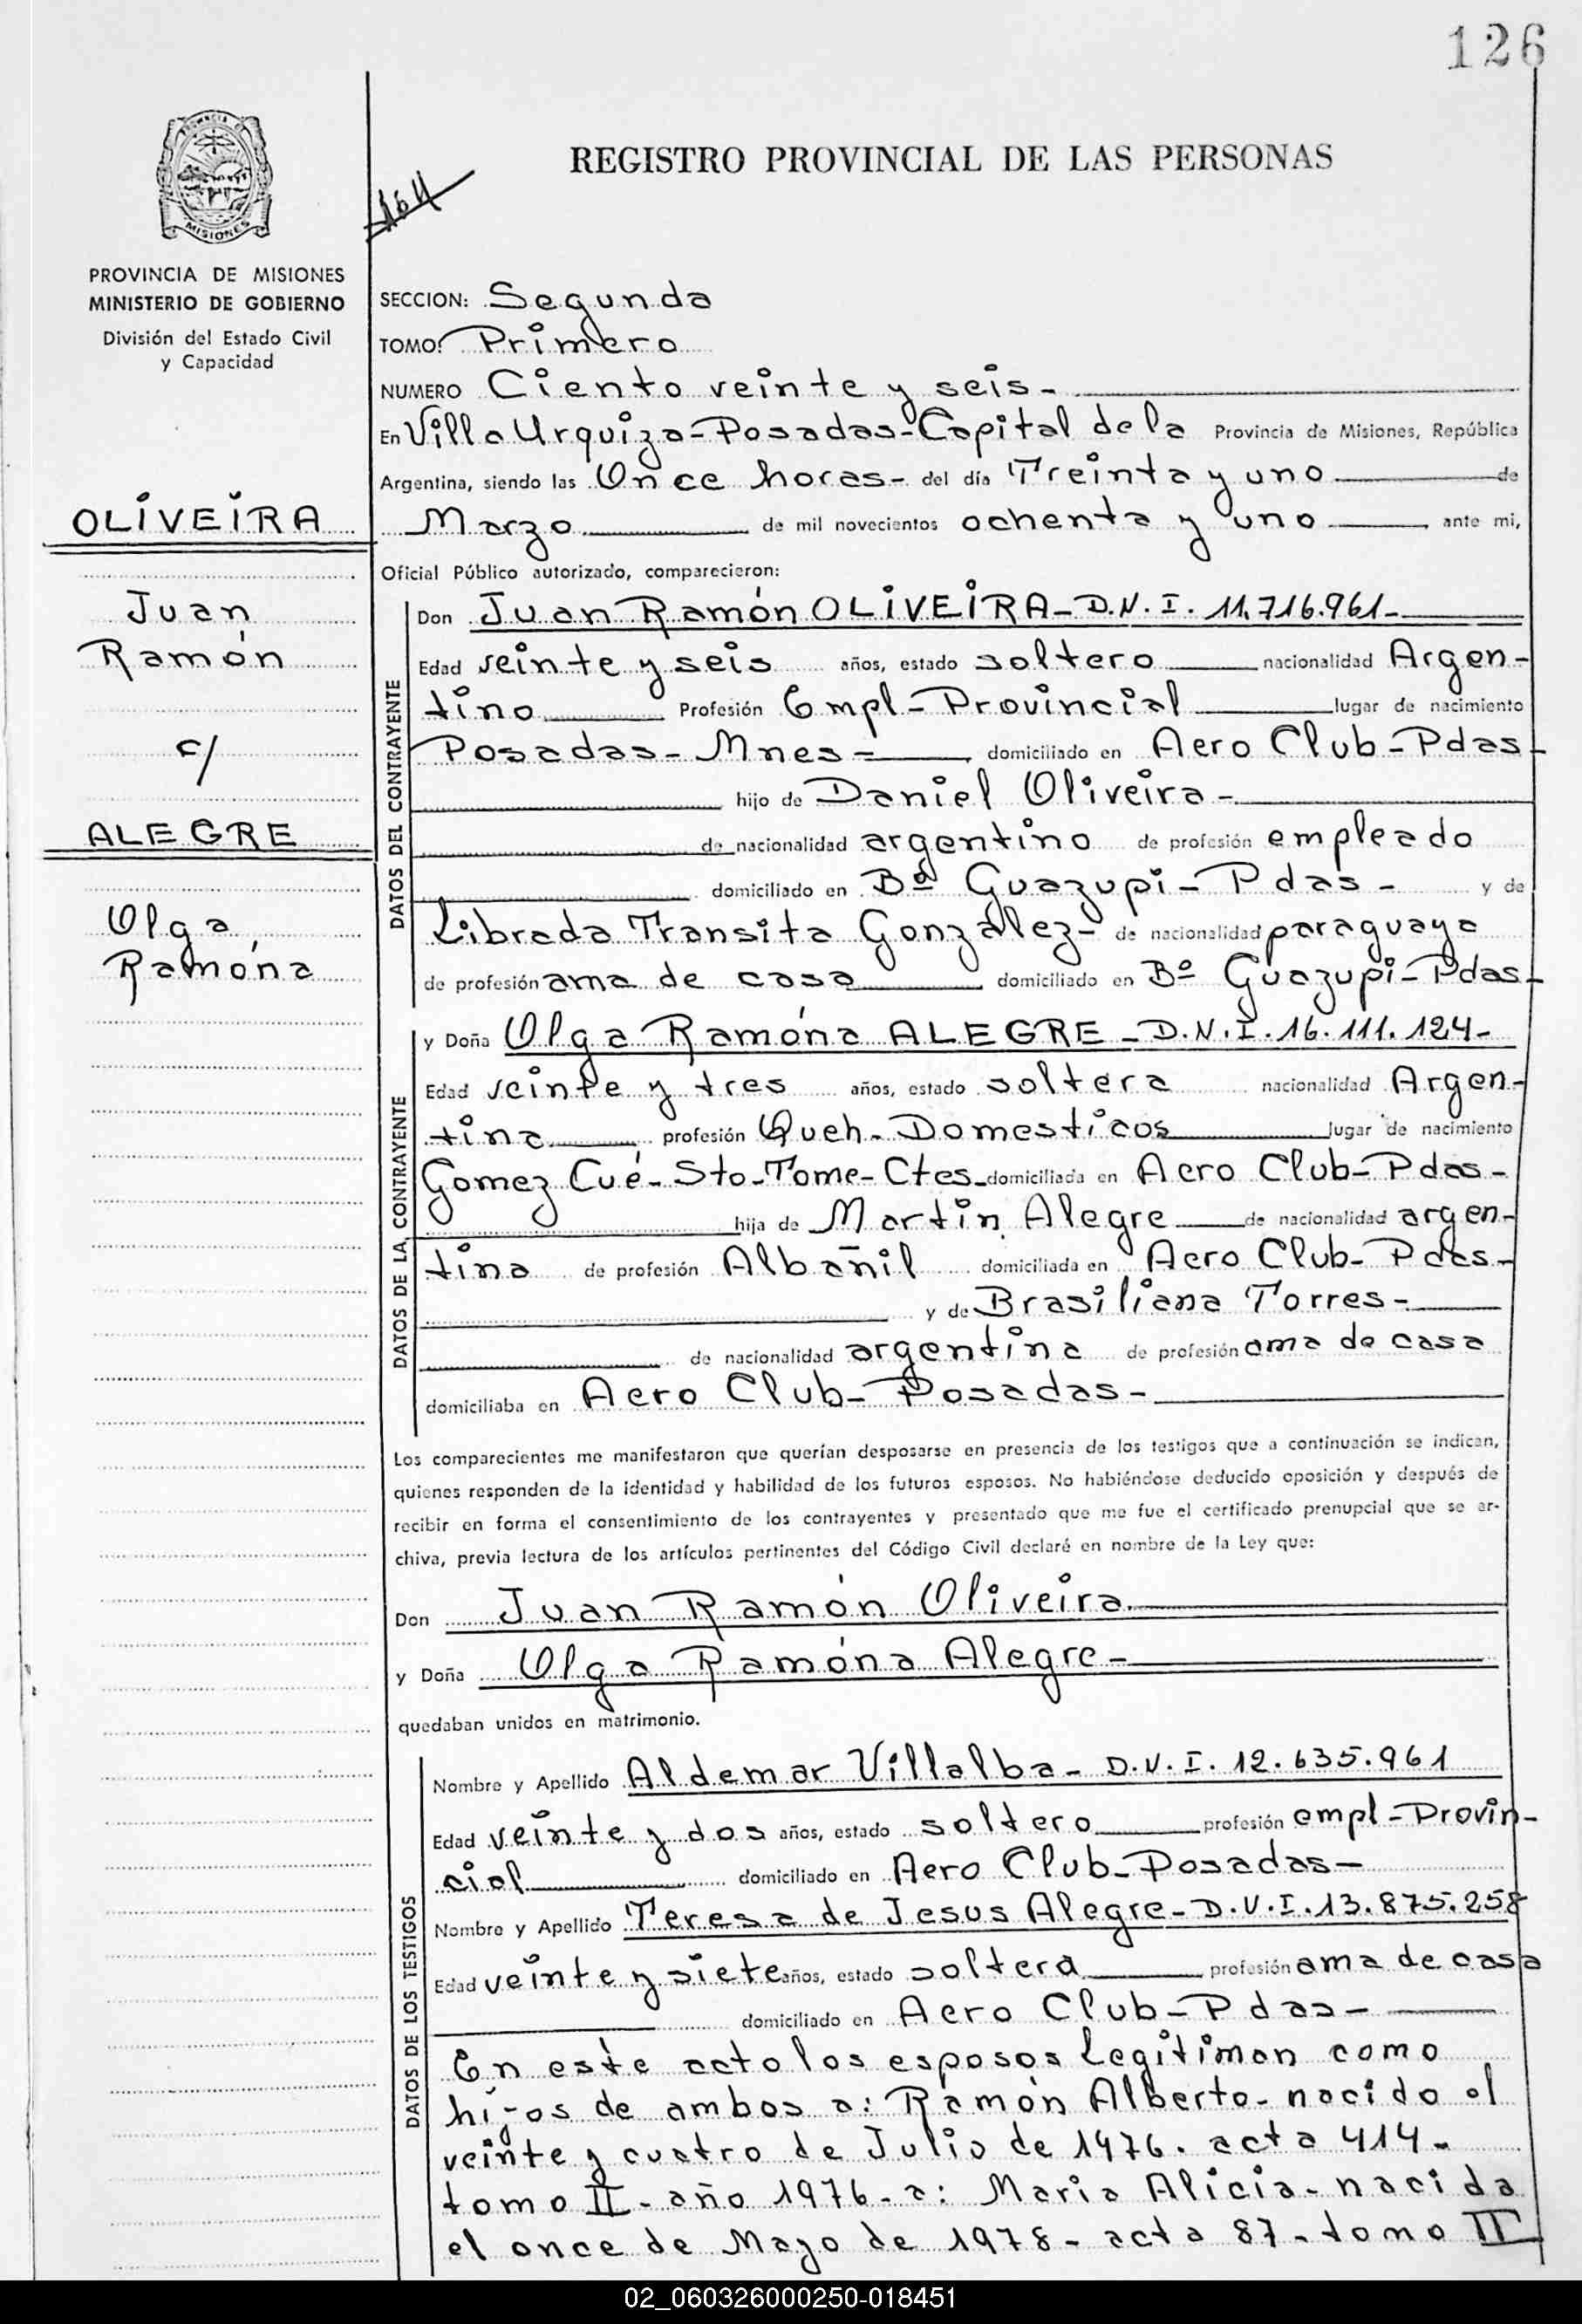 126
REGISTRO PROVINCIAL DE LAS PERSONAS
MISIONES
PROVINCIA DE MISIONES
MINISTERIO DE GOBIERNO
División del Estado Civil
y Capacidad
SECCION: Segunda
TOMO: Primero
NUMERO Ciento veinte y seis-
En Villa Urquiza-Posadas-Capital de la Provincia de Misiones, República
Argentina, siendo las Once horas- del día Treinta y uno de
Marzo de mil novecientos ochenta y uno ante mi,
Oficial Público autorizado, comparecieron:
OLIVEIRA
Juan
Ramón
c/
ALEGRE
Olga
Ramóna
DATOS DEL CONTRAYENTE
Don Juan Ramón OLIVEIRA-D.N.I. 11.716.961-
Edad veinte y seis años, estado soltero nacionalidad Argen-
tino Profesión Empl-Provincial lugar de nacimiento
Posadas-Mnes= domiciliado en Aero Club-Pdas-
hijo de Daniel Oliveira-
de nacionalidad argentino de profesión empleado
domiciliado en Bº Guazupi-Pdas- y de
Librada Transita González- de nacionalidad paraguaya
de profesión ama de casa domiciliado en Bº Guazupi-Pdas-
DATOS DE LA CONTRAYENTE
y Doña Olga Ramóna ALEGRE-D.N.I.16.111.124-
Edad veinte y tres años, estado soltera nacionalidad Argen-
tina profesión Queh-Domesticos lugar de nacimiento
Gomez Cué-Sto-Tome-Ctes- domiciliada en Aero Club-Pdas-
hija de Martin Alegre de nacionalidad argen-
tina de profesión Albañil domiciliada en Aero Club-Pdas-
y de Brasiliana Torres-
de nacionalidad argentina de profesión ama de casa
domiciliaba en Aero Club-Posadas-
Los comparecientes me manifestaron que querían desposarse en presencia de los testigos que a continuación se indican,
quienes responden de la identidad y habilidad de los futuros esposos. No habiéndose deducido oposición y después de
recibir en forma el consentimiento de los contrayentes y presentado que me fue el certificado prenupcial que se ar-
chiva, previa lectura de los artículos pertinentes del Código Civil declaré en nombre de la Ley que:
Don Juan Ramón Oliveira
y Doña Olga Ramóna Alegre-
quedaban unidos en matrimonio.
DATOS DE LOS TESTIGOS
Nombre y Apellido Aldemar Villalba-D.N.I. 12.635.961
Edad veinte y dos años, estado soltero profesión empl-Provin-
cial domiciliado en Aero Club-Posadas-
Nombre y Apellido Teresa de Jesus Alegre-D.N.I.13.875.258
Edad veinte y siete años, estado soltera profesión ama de casa
domiciliado en Aero Club-Pdas-
En este acto los esposos Legitiman como
hijos de ambos a: Ramón Alberto-nacido el
veinte y cuatro de Julio de 1976. acta 414-
tomo II-año 1976-a: Maria Alicia-nacida
el once de Mayo de 1978-acta 87-tomo II
02_060326000250-018451